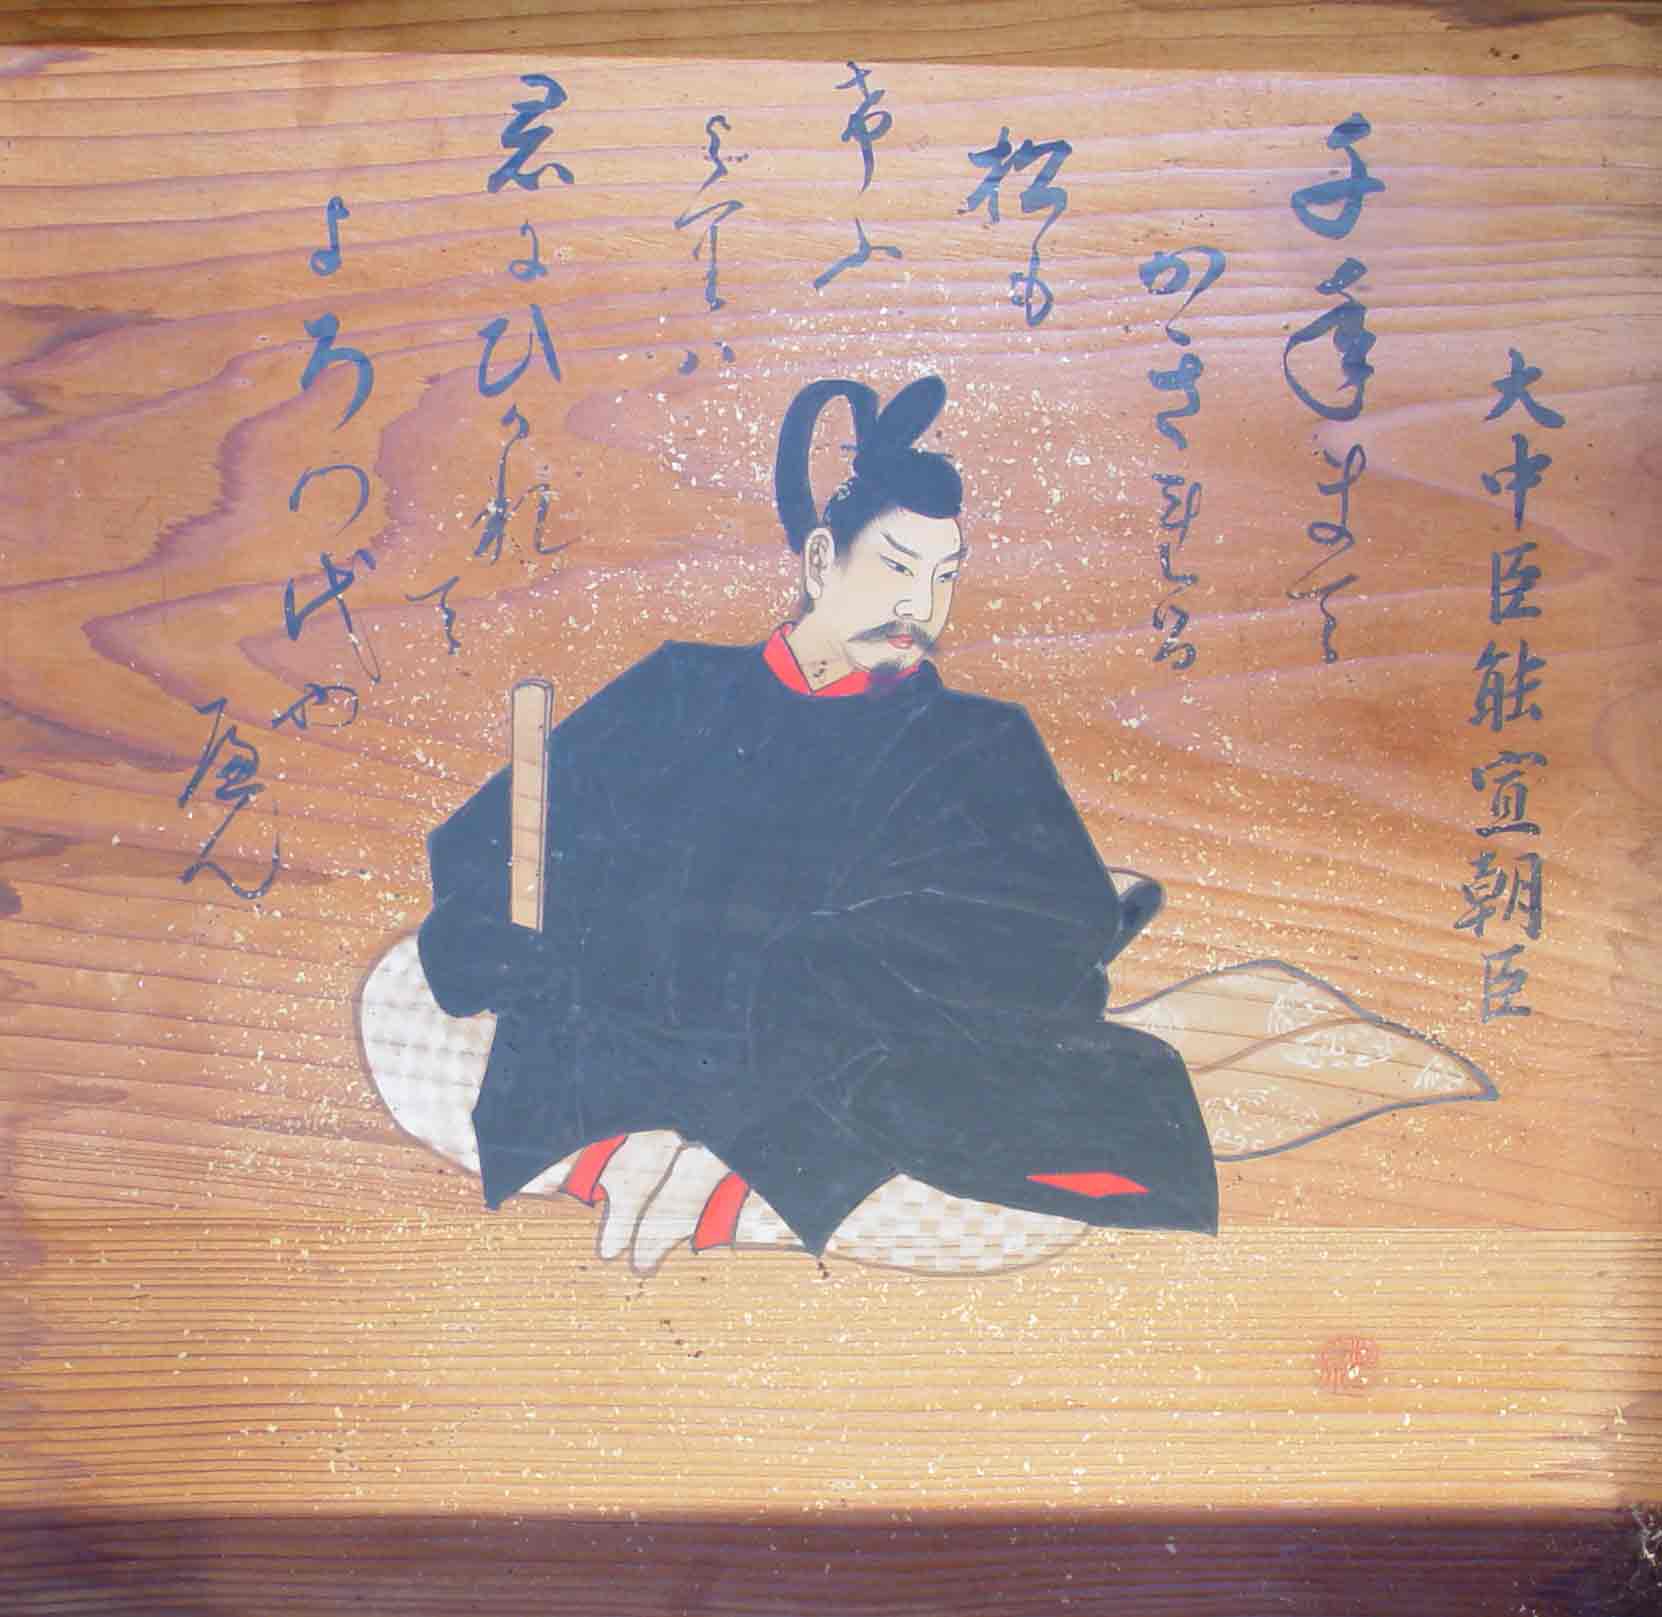 大中臣能宣朝臣
千年まて
かきれる
松も
けふ
よりハ
君にひかれて
よろつ代や
へん